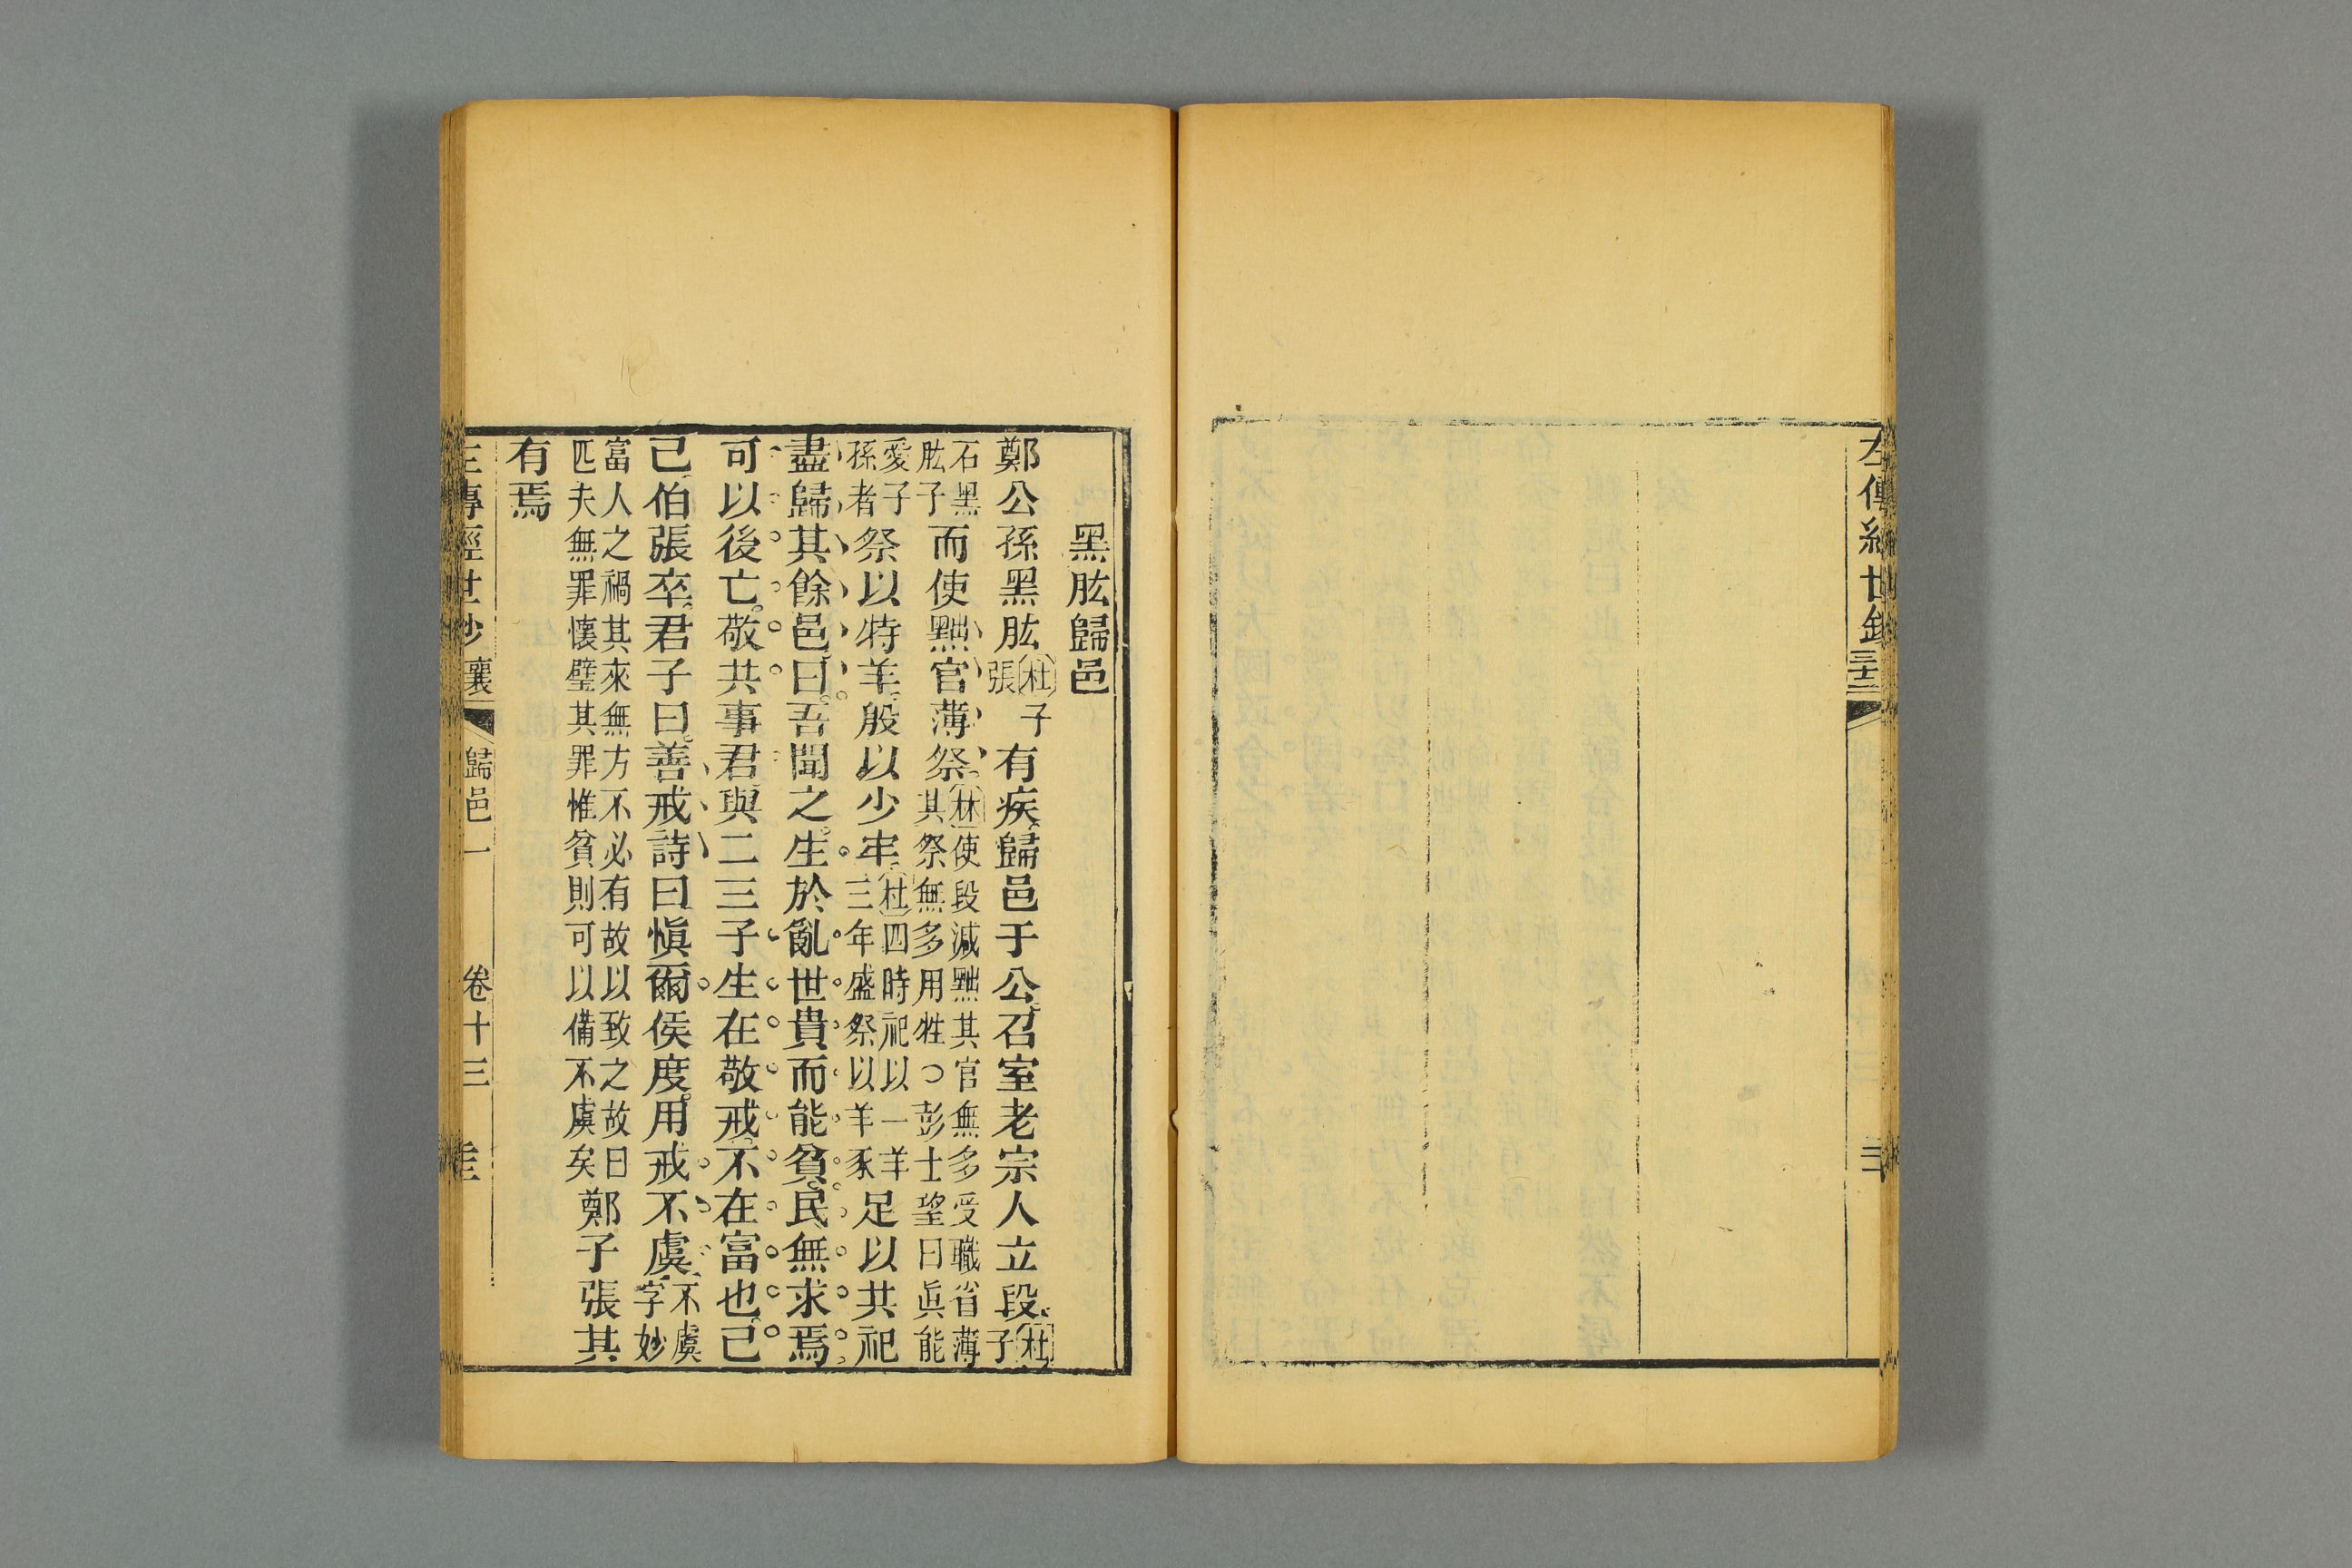 左傳經世鈔
黑肱歸邑
鄭公孫黑肱杜子張有疾歸邑于公召室老宗人立段杜子
石黑肱子而使黜官薄祭林使段減黜其官無多受職省薄其祭無多用牲○彭士望曰眞能
愛子孫者祭以特羊殷以少牢杜四時祀以一羊三年盛祭以羊豕足以共祀
盡歸其餘邑曰吾聞之生於亂世貴而能貧民無求焉
可以後亡敬共事君與二三子生在敬戒不在富也己
己伯張卒君子曰善戒詩曰愼爾侯度用戒不虞不虞字妙
富人之禍其來無方不必有故以致之故曰匹夫無罪懷璧其罪惟貧則可以備不虞矣鄭子張其
有焉
左傳經世鈔 襄 歸邑一 卷十三